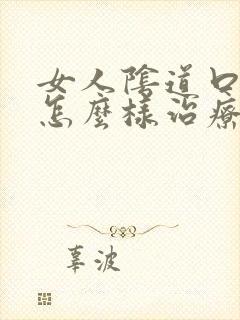 女人陰道口
怎麼樣治療
辜波